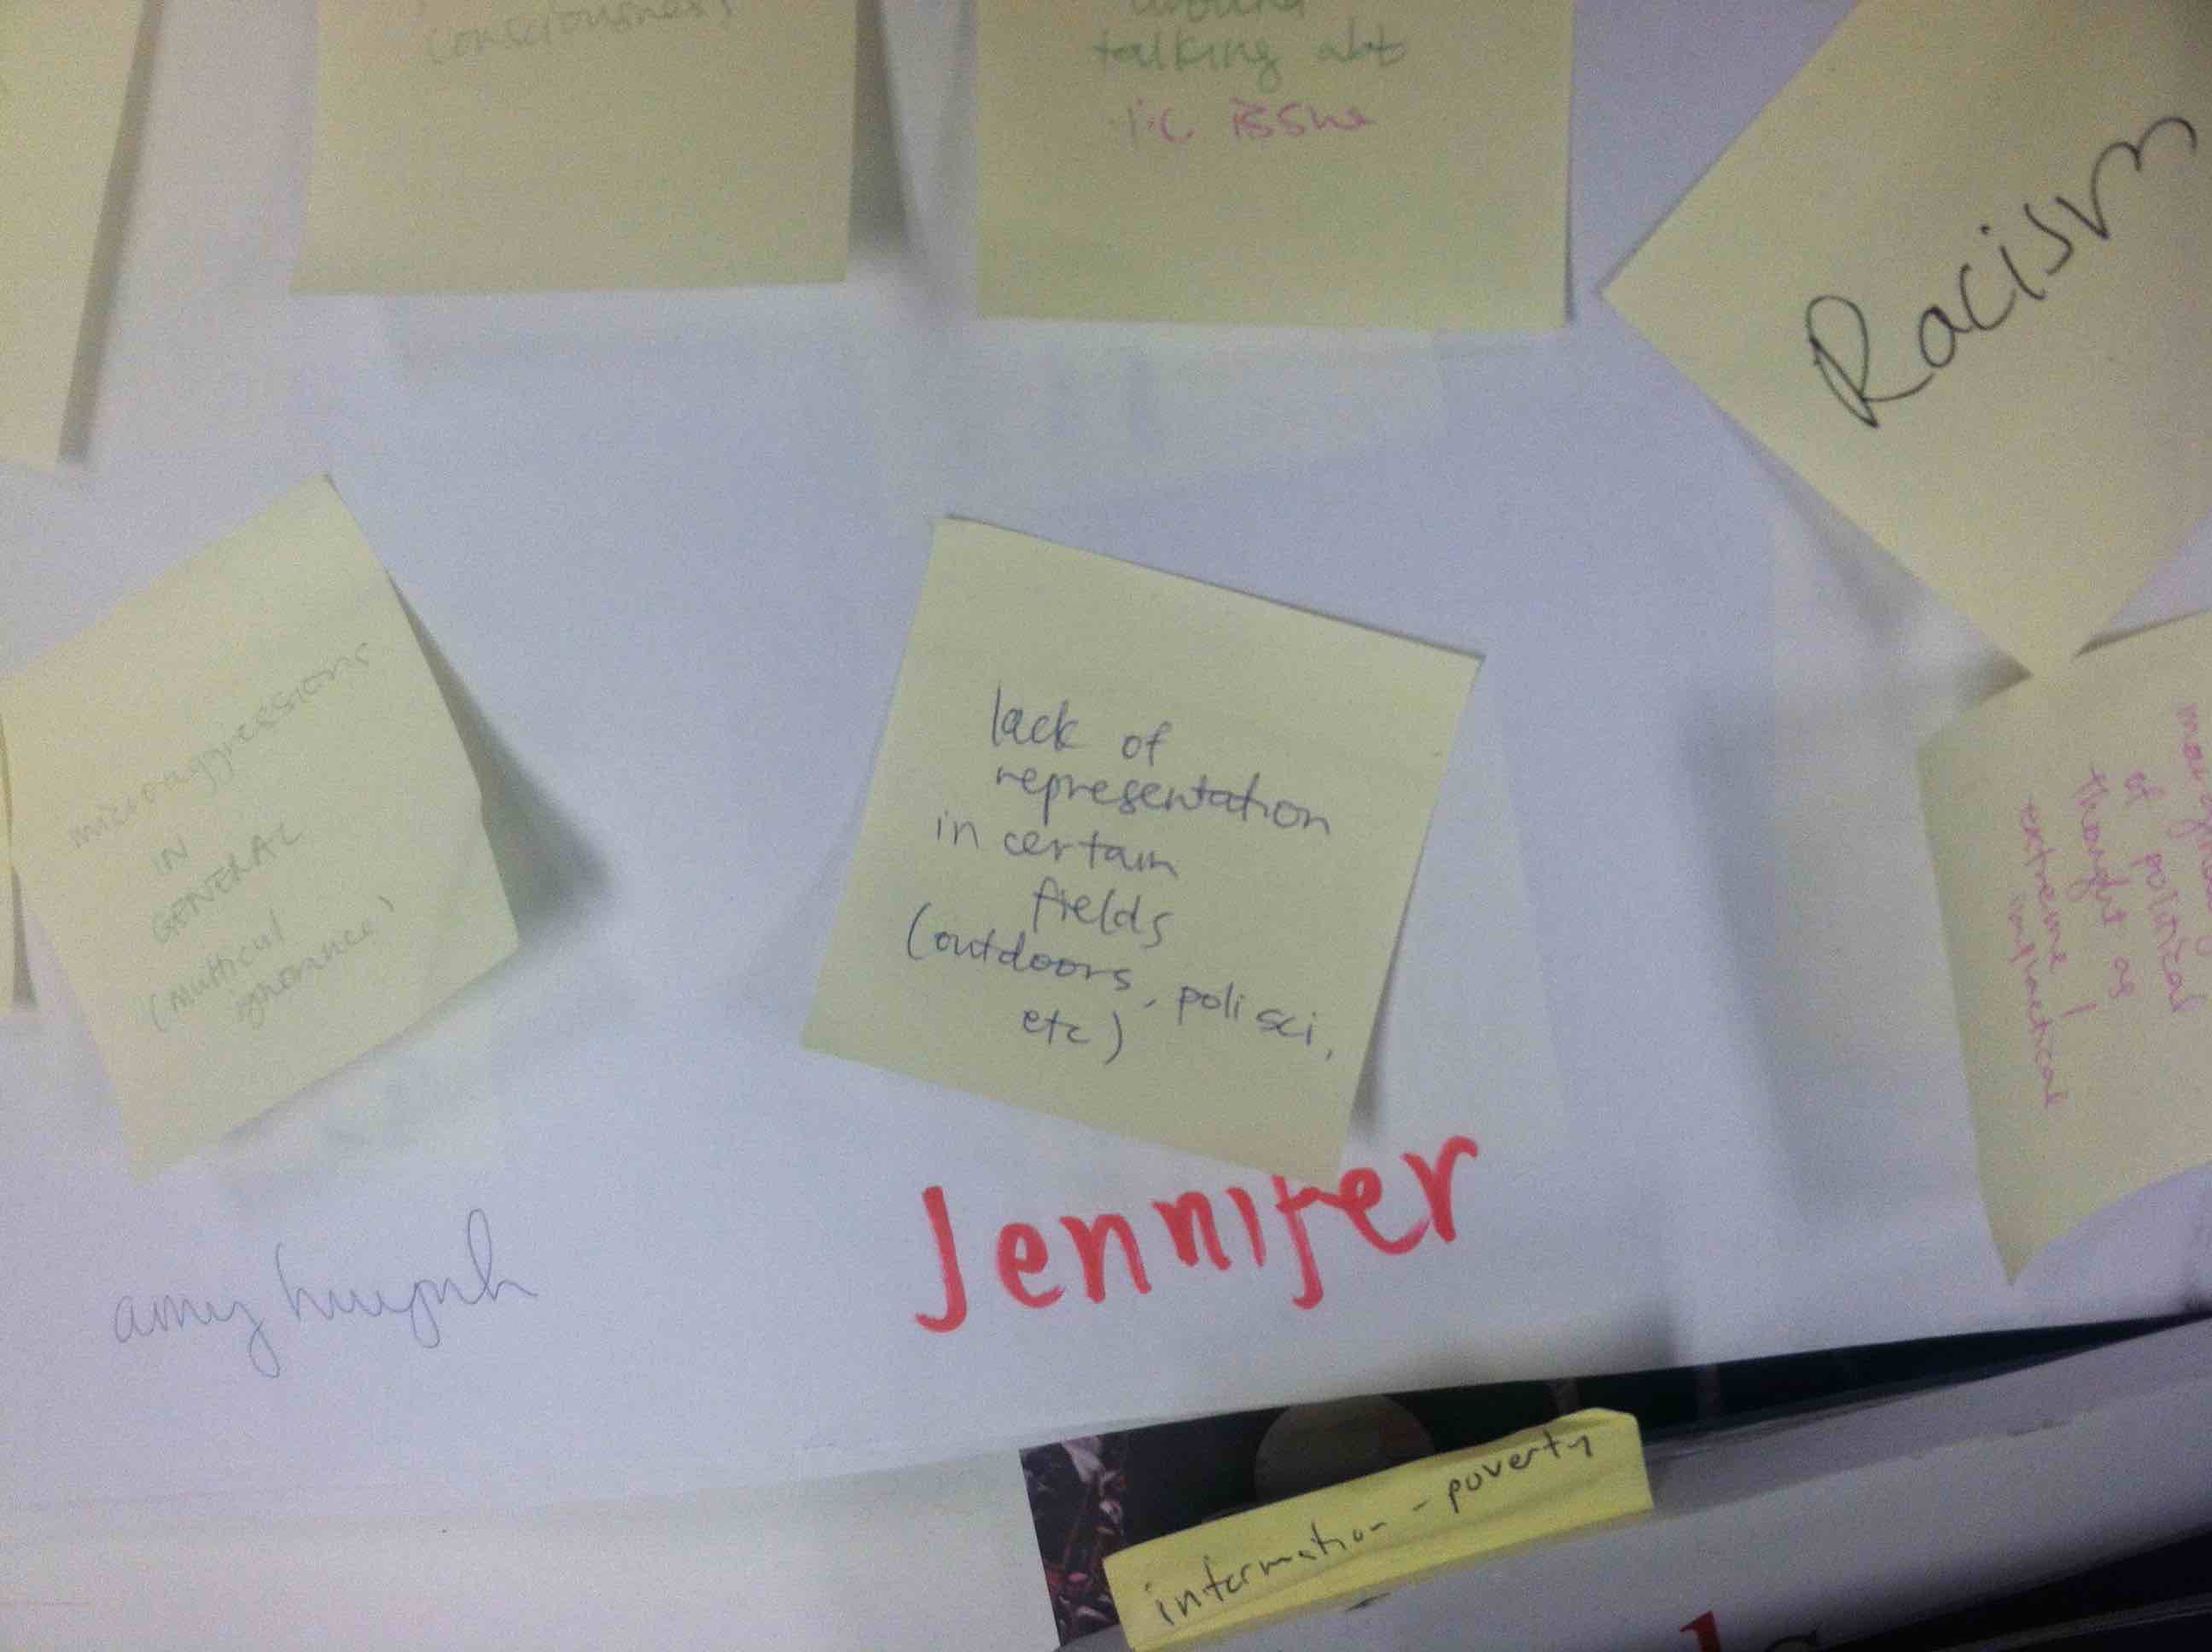 consciousness)
around
talking abt
issue
Racism
microaggressions
IN
GENERAL
(multicul
ignorance)
lack of
representation
in certain
fields
(outdoors, poli sci,
etc)
of political
thought as
extreme /
impractical
amy huynh
Jennifer
information - poverty